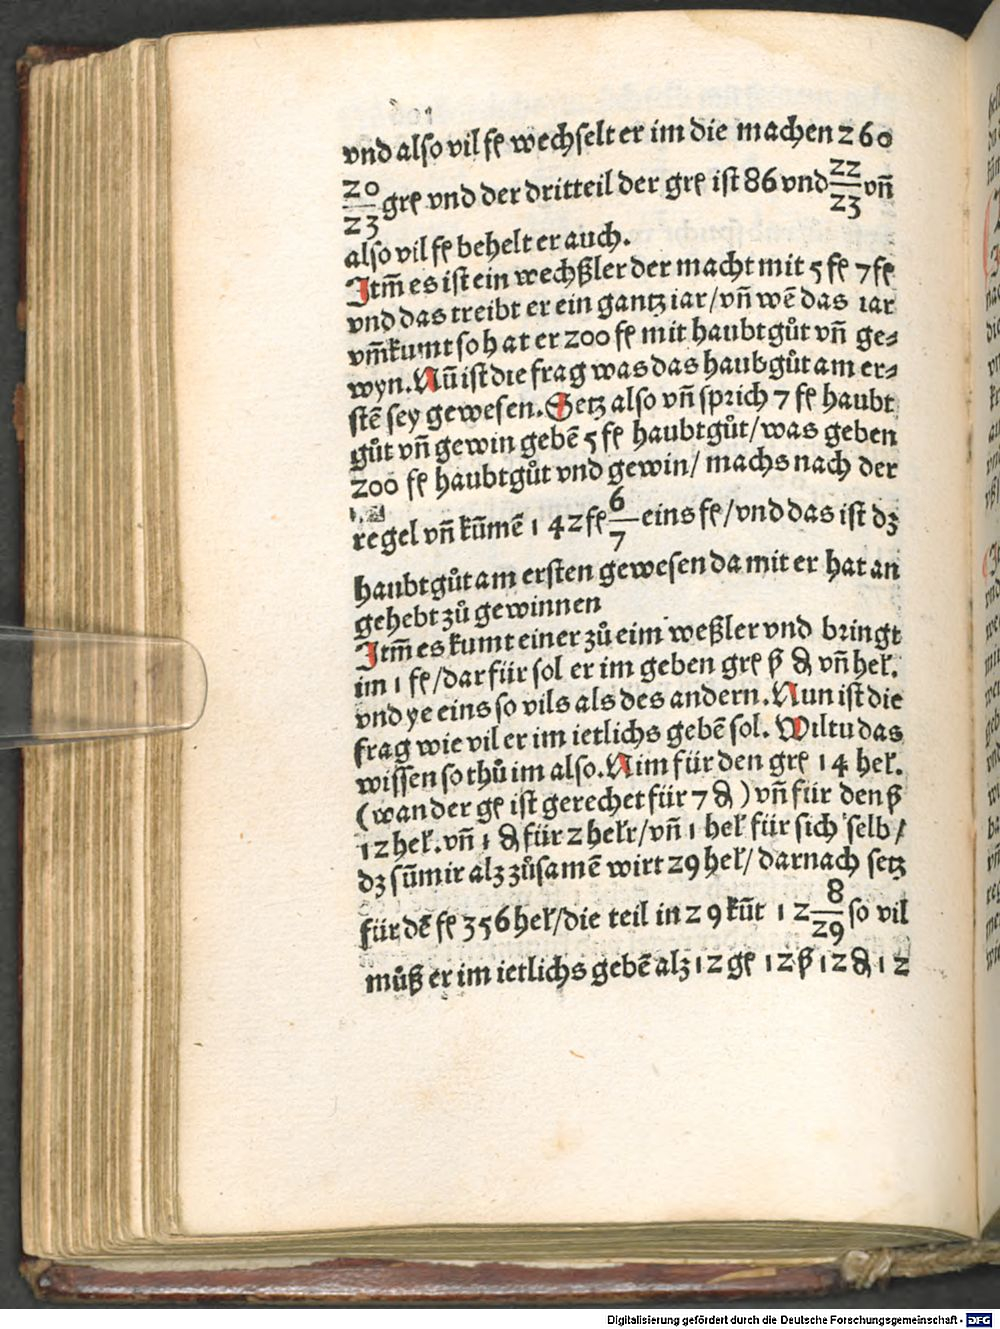 vnd also vil fł wechselt er im die machen 260
20/23 grł vnd der dritteil der grł ist 86 vnd 22/23 vñ
also vil fł behelt er auch.
Itm̃ es ist ein wechßler der macht mit 5 fł 7 fł
vnd das treibt er ein gantz iar/vñ wē das iar
vm̃kumt so hat er 200 fł mit haubtgůt vñ ge⸗
wyn. Nũ ist die frag was das haubgůt am er⸗
stē sey gewesen. Setz also vñ sprich 7 fł haubt
gůt vñ gewin gebē 5 fł haubtgůt/was geben
200 fł haubtgůt vnd gewin/ machs nach der
regel vñ kũmē 142 fł 6/7 eins fł/vnd das ist dz
haubtgůt am ersten gewesen da mit er hat an
gehebt zů gewinnen
Itm̃ es kumt einer zů eim weßler vnd bringt
im 1 fł/darfür sol er im geben grł ß ₰ vñ heł.
vnd ye eins so vils als des andern. Nun ist die
frag wie vil er im ietlichs gebē sol. Wiltu das
wissen so thů im also. Nim für den grł 14 heł.
(wan der gł ist gerechet für 7 ₰) vñ für den ß
12 heł. vñ 1 ₰ für 2 hełr/vñ 1 heł für sich selb/
dz sũmir alz zůsamē wirt 29 heł/ darnach setz
für dē fł 356 heł/die teil in 29 kũt 12 8/29 so vil
můß er im ietlichs gebē alz 12 gł 12 ß 12 ₰ 12
Digitalisierung gefördert durch die Deutsche Forschungsgemeinschaft - DFG